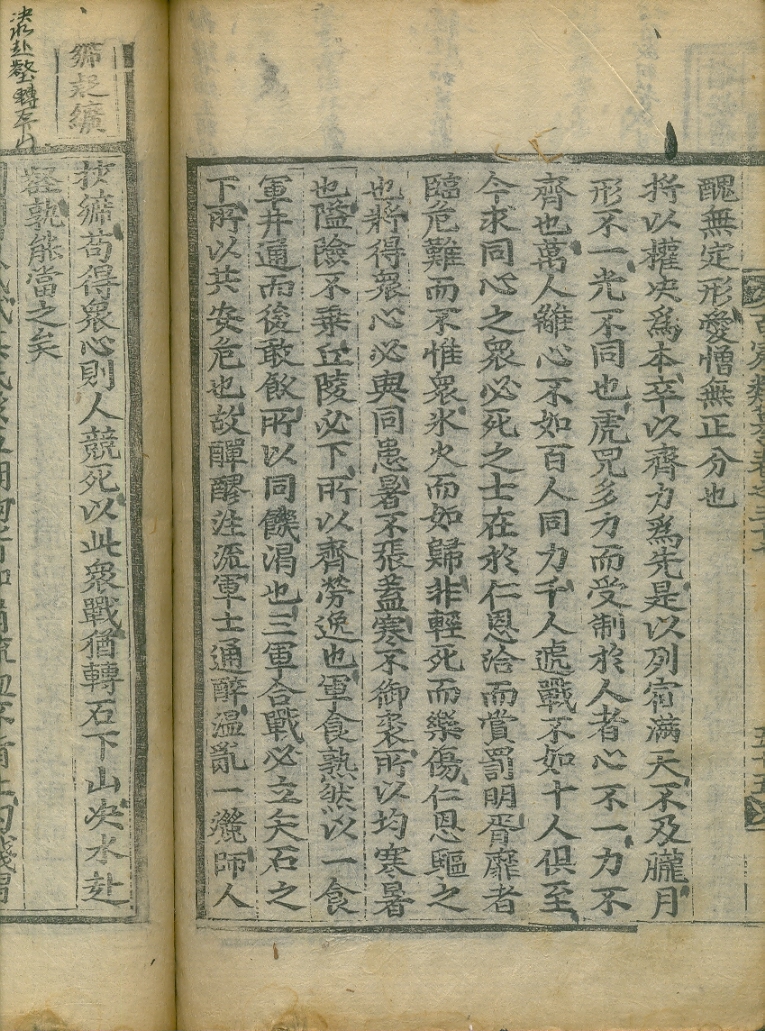 百家類纂卷之三十七
五十五
醜無定形愛憎無正分也
將以權决爲本卒以齊力爲先是以列宿滿天不及朧月
形不一光不同也虎兕多力而受制於人者心不一力不
齊也萬人離心不如百人同力千人遞戰不如十人俱至
今求同心之衆必死之士在於仁恩洽而賞罰明胥靡者
臨危難而不惟衆氷火而如歸非輕死而樂傷仁恩驅之
也將得衆心必與同患暑不張蓋寒不御裘所以均寒暑
也隘險不乗丘陵必下所以齊勞逸也軍食熟然以一食
軍井通而後敢飲所以同饑渴也三軍合戰必立矢石之
下所以共安危也故醳醪注流軍士通醉温亂一灑師人
挾纊苟得衆心則人競死以此衆戰猶轉石下山决水赴
壑孰能當之矣
決水赴壑轉石下山